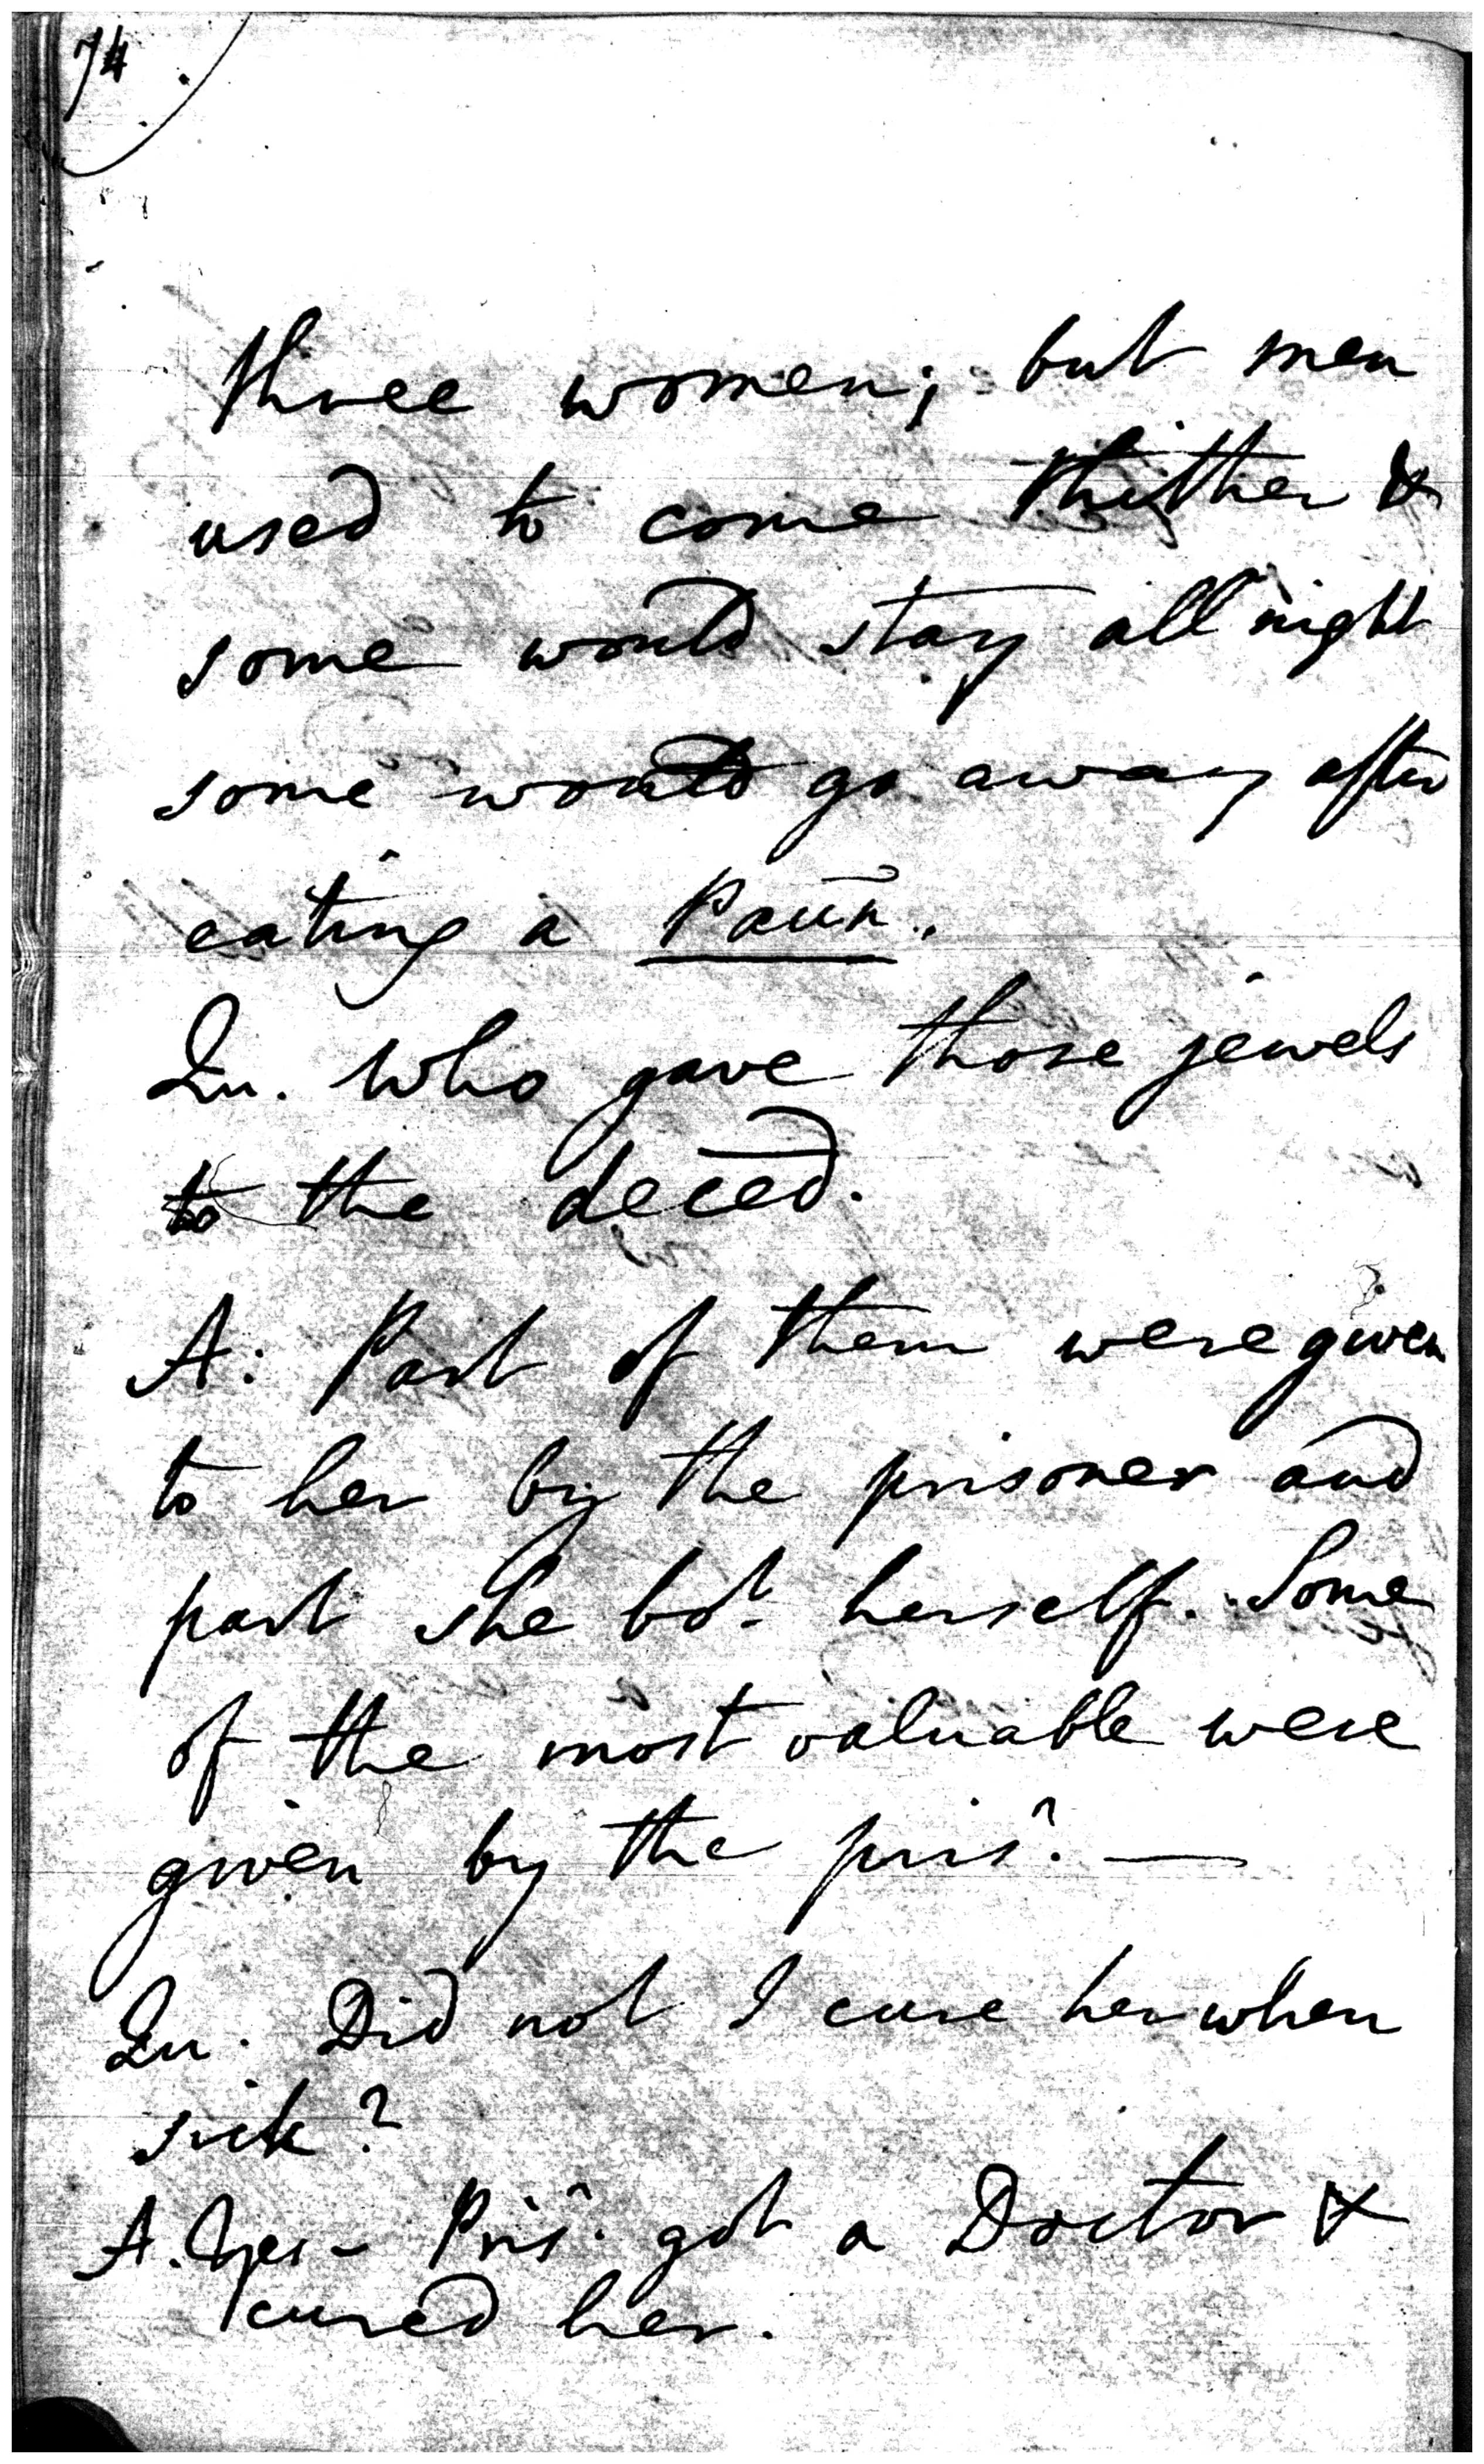 74
three women; but men
used to come thither &
some would stay all night
some would go away after
eating a Paun.
Qu. Who gave those jewels
to the deced.
A: Part of them were given
to her by the prisoner and
part she bot. herself. Some
of the most valuable were
given by the prisr. —
Qu. Did not I cure her when
sick?
A. Yes - Prisr. got a Doctor &
cured her.